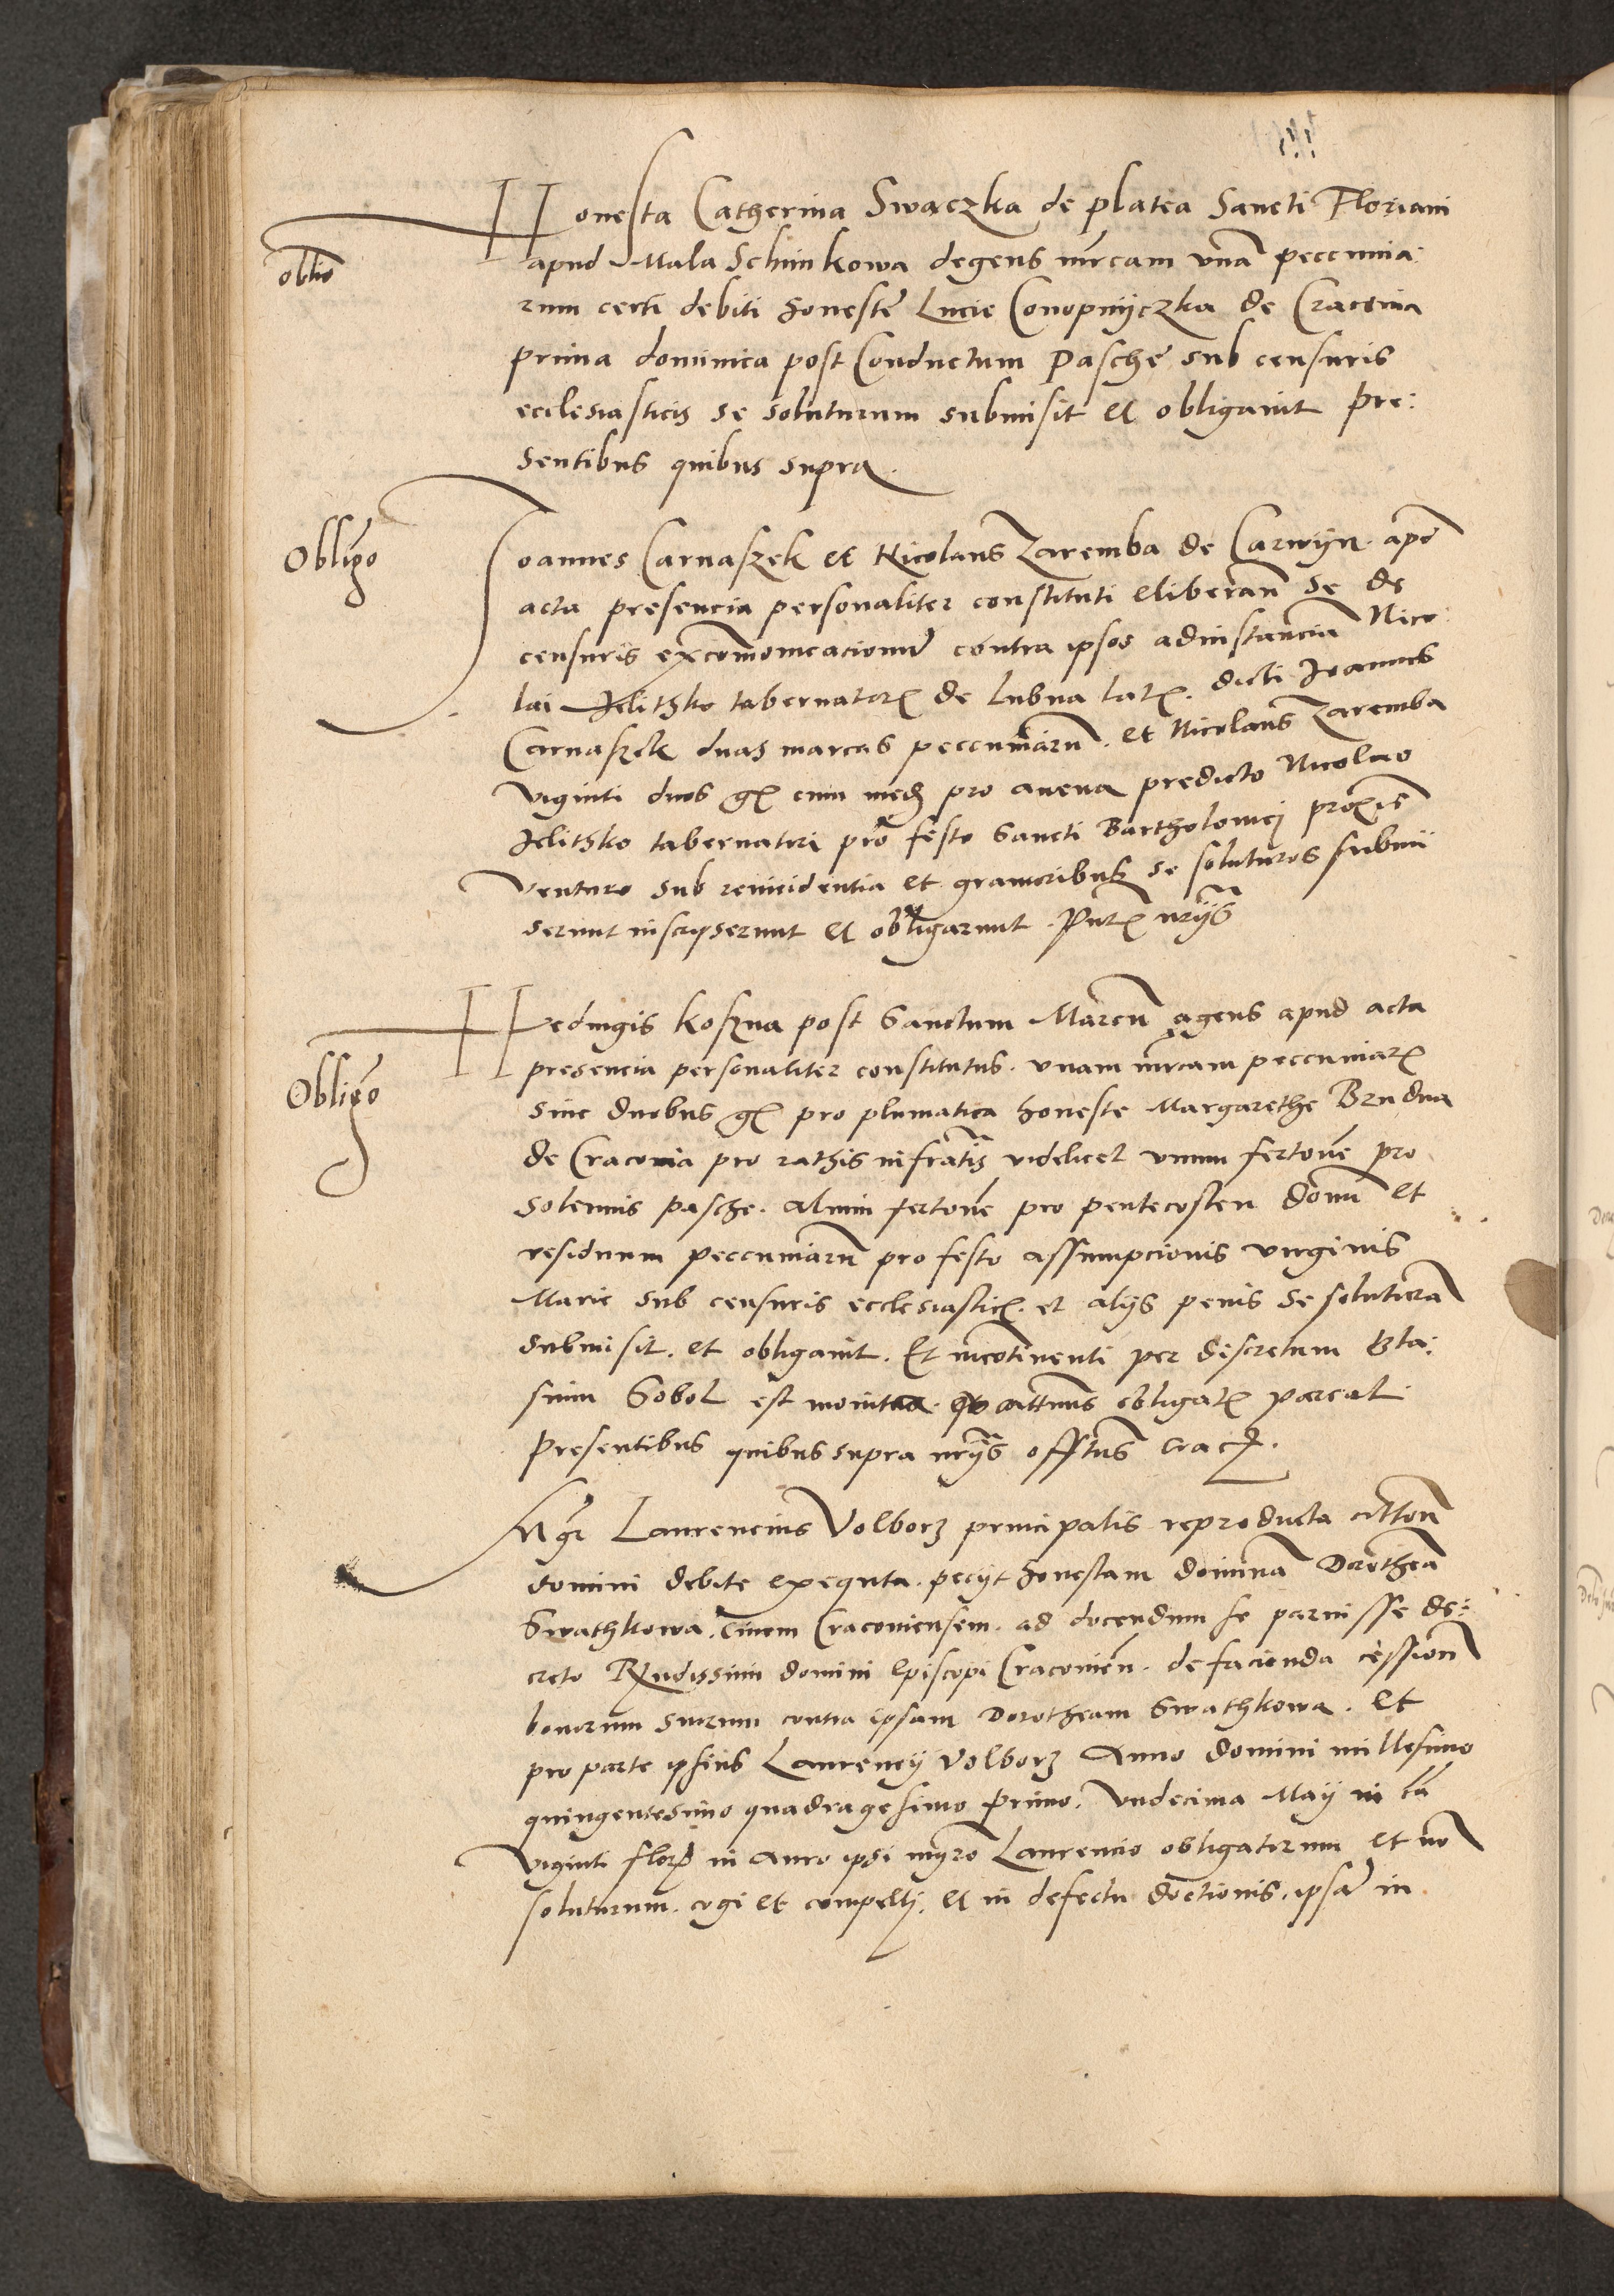 oblio
Honesta Catherina Swaczka de platea Sancti Floriani
apud Mala Schimkowa degens mrcam vnã peccunia:
rum certi debiti honeste Lucie Conopnyczka de Cracovia
prima dominica post Conductum Pasche sub censuris
ecclesiasticis se soluturum submisit et obligauit pre:
sentibus quibus supra.
Obligo
Joannes Carnaszek et Nicolaus Zaremba de Carwyn apd
acta presencia personaliter constituti eliberan se de
censuris excommonicacionum contra ipsos adinstancia Nico:
lai Jelithko tabernator de Lubna lat. dicti Joannes
Carnaszek duas marcas peccuniarũ. et Nicolaus Zaremba
viginti duos gr cum med pro avena predicto Nicolao
Jelithko tabernatori pro festo Sancti Bartholomei proxis
venturo sub reincidentia et grauioribus se soluturos submi
serunt inscripserunt et obligarunt. Pntĩ nrijs
Obligo
Hedwigis Koszna post Sanctum Marcũ agens apud acta
presencia personaliter constitutus. vnam mrcam peccuniar
sine duobus gr pro plumatica honeste Margarethe Brudna
de Cracovia pro rathis infratis videlicet vnum fertonẽ pro
solennis pasche. alium fertonẽ pro pentecosten domĩ et
residuum peccuniarũ pro festo assumpcionis virginis
Marie sub censuris ecclesiastic. et alijs penis se soluturã
submisit. et obligauit. Et incotinenti per discretum Bla:
sium Sobol est monita qo attinus obligat pareat
presentibus quibus supra nrijs offtus crac.
Mgr Laurencius Volborz principalis reproducta citton
domini debite exequta. pecyt honestam dominã Dorotheã
Swathkowa, Ciuem Cracouiensem. ad docendum se paruisse de:
creto Rndissimi domini Episcopi Cracouien. de facienda cession
bonorum suorum contra ipsam Dorotheam Swathkowa. Et
pro parte ipsius Laurencij Volborz Anno domini millesimo
quingentesimo quadragesimo primo. Vndecima May in cã
viginti flor in Auro ipsi mgro Laurencio obligatorum et nõ
solutorum. cogi et compelli. et in defectu doctionis. ipsã in